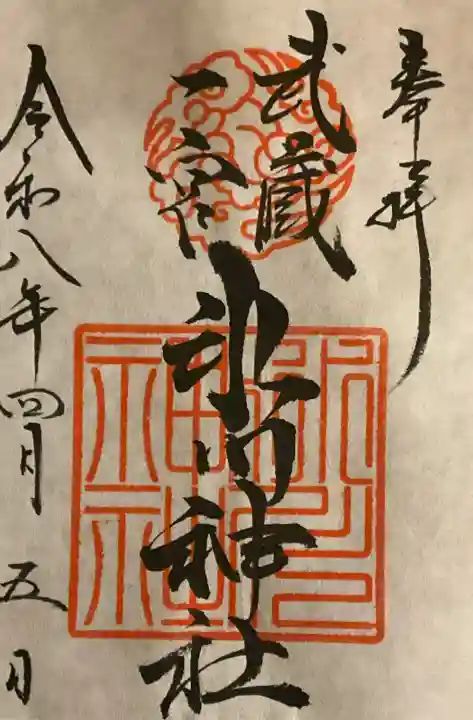 奉拝
武蔵
一宮
氷川神社
令和八年四月五日
氷川神社